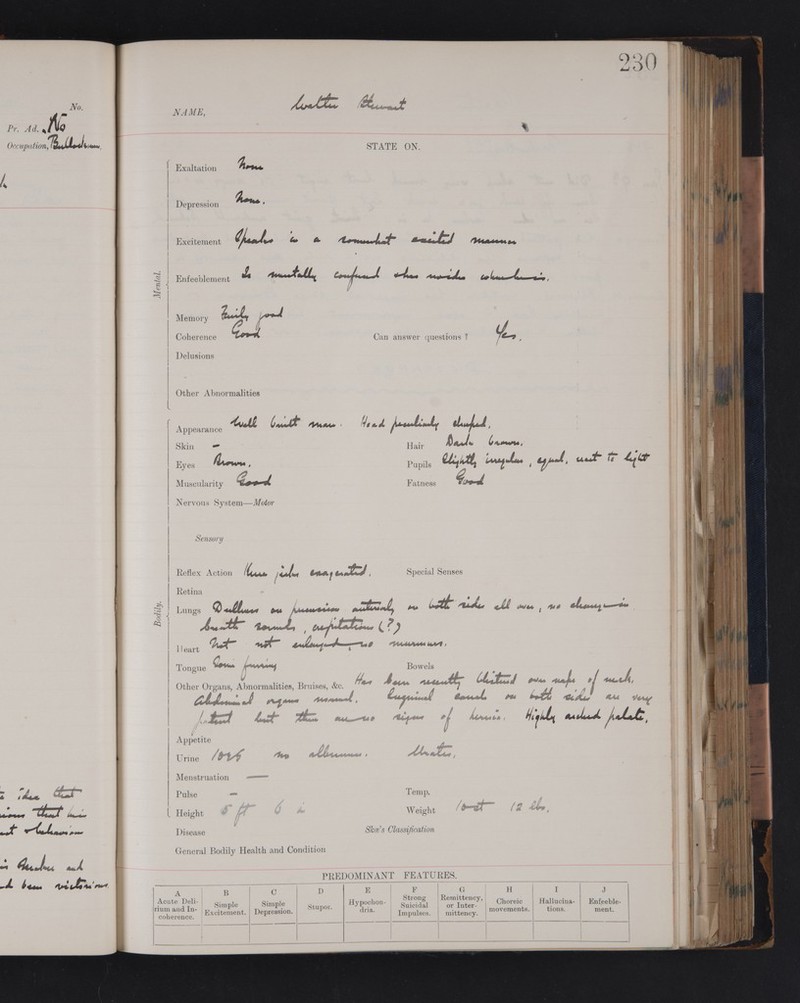 230
No.
Pr. Ad. No
Occupation,
NAME, Walter Stewart
STATE ON.
Mental.
Exaltation None
Depression None.
Excitement Speaks in a somewhat excited manner
Enfeeblement Is mentally confused
Memory Fairly good
Coherence Good Can answer questions? Yes.
Delusions
Other Abnormalities
Bodily.
Appearance Well built man. Head peculiarly shaped.
Skin – Hair Dark brown.
Eyes Brown. Pupils Slightly irregular, equal, react to light
Muscularity Good Fatness Good
Nervous System—Motor
Sensory
Reflex Action Knee jerks exaggerated. Special Senses
Retina
Lungs Dullness on percussion anteriorly on both sides all over, no change in
breath sounds, crepitations (?)
Heart not enlarged, no murmurs.
Tongue Some furring Bowels
Other Organs, Abnormalities, Bruises, &c. Has been recently blistered over nape of neck.
Abdominal organs normal. Inguinal canals on both sides are very
patent but there are no signs of hernia. Highly arched palate.
Appetite
Urine 1026 no albumen. Urates.
Menstruation —
Pulse – Temp.
Height 5 ft 6 in Weight 10 st 12 lbs.
Disease Skae's Classification
General Bodily Health and Condition
idea that
that his
and
been victorious
PREDOMINANT FEATURES.
A B C D E F G H I J
Acute Delirium and Incoherence. Simple Excitement. Simple Depression. Stupor. Hypochondria. Strong Suicidal Impulses. Remittency, or Intermittency. Choreic movements. Hallucinations. Enfeeblement.